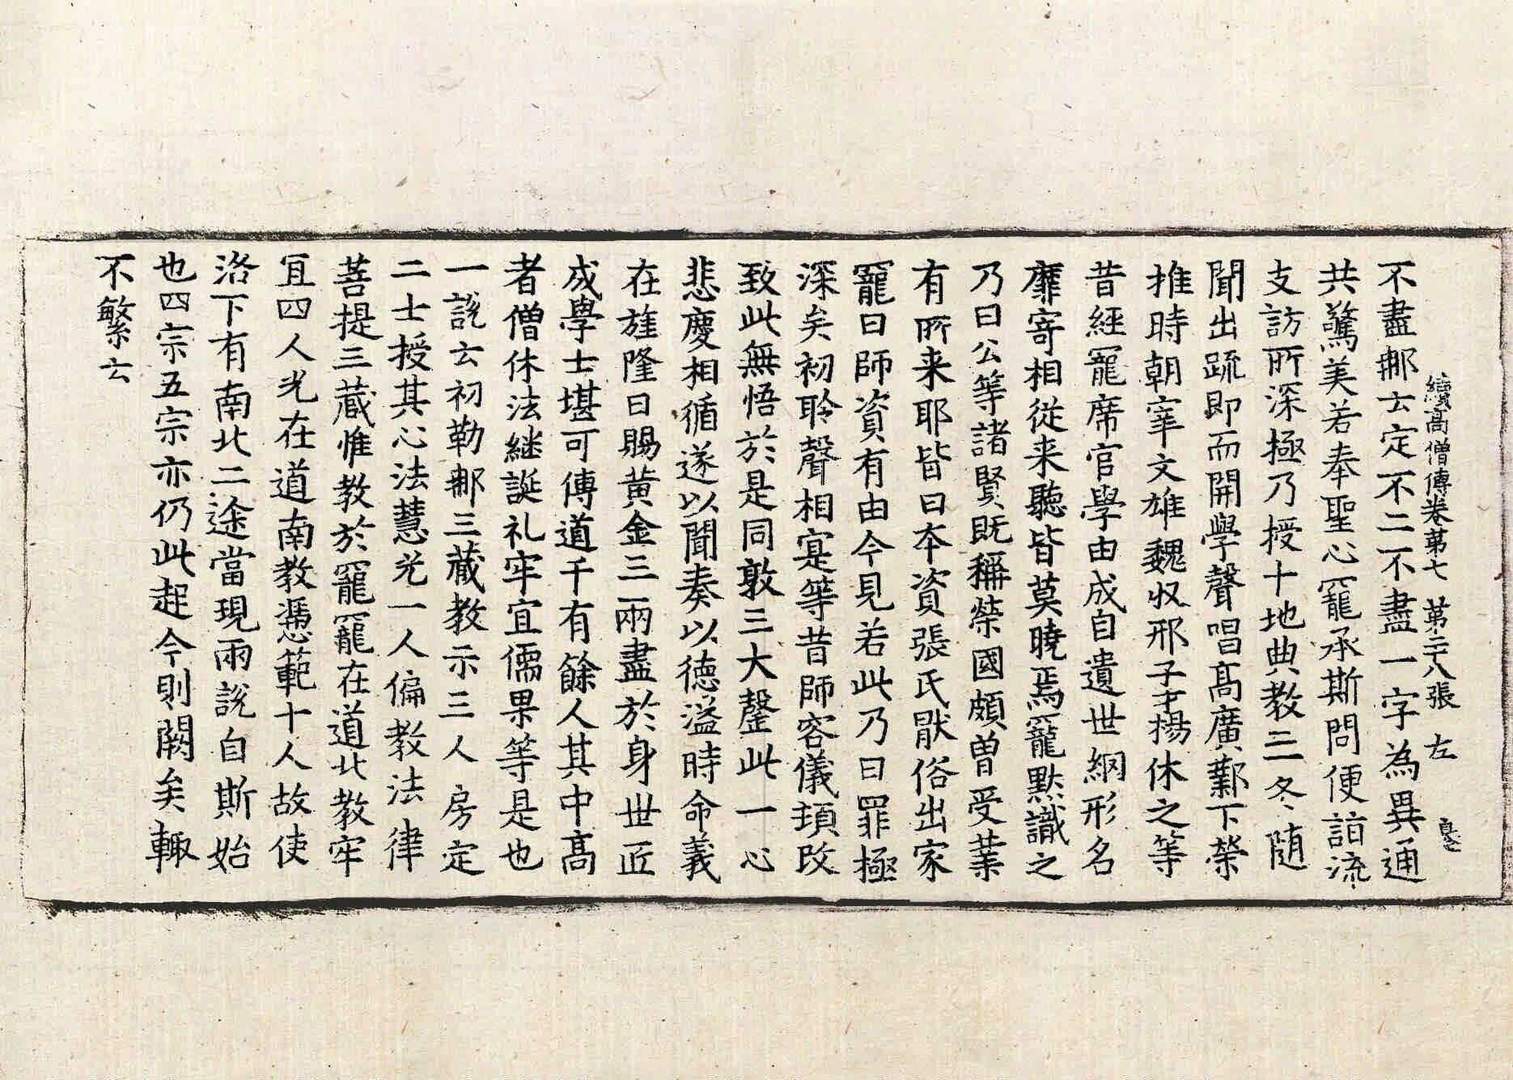 續高僧傳卷第七　第二十八張　左
不盡那云定不二不盡一字為異通
共驚美若奉聖心寵承斯問便詣流
支訪所深極乃授十地典教三冬隨
聞出疏即而開學聲唱高廣鄴下榮
推時朝宰文雄魏収邢子才楊休之等
昔經寵席官學由成自遺世網形名
靡寄相從来聽皆莫曉焉寵默識之
乃曰公等諸賢既稱榮國頗曽受業
有所来耶皆曰本資張氏猒俗出家
寵曰師資有由今見若此乃曰罪極
深矣初聆聲相寔等昔師容儀頓改
致此無悟於是同敦三大罄此一心
悲慶相循遂以聞奏以德溢時命義
在旌隆日賜黄金三兩盡於身世匠
成學士堪可傳道千有餘人其中高
者僧休法継誕礼牢宜儒果等是也
一説云初勒那三藏教示三人房定
二士授其心法慧光一人偏教法律
菩提三藏惟教於寵寵在道北教牢
宜四人光在道南教憑範十人故使
洛下有南北二途當現兩説自斯始
也四宗五宗亦仍此起今則闕矣輙
不繁云